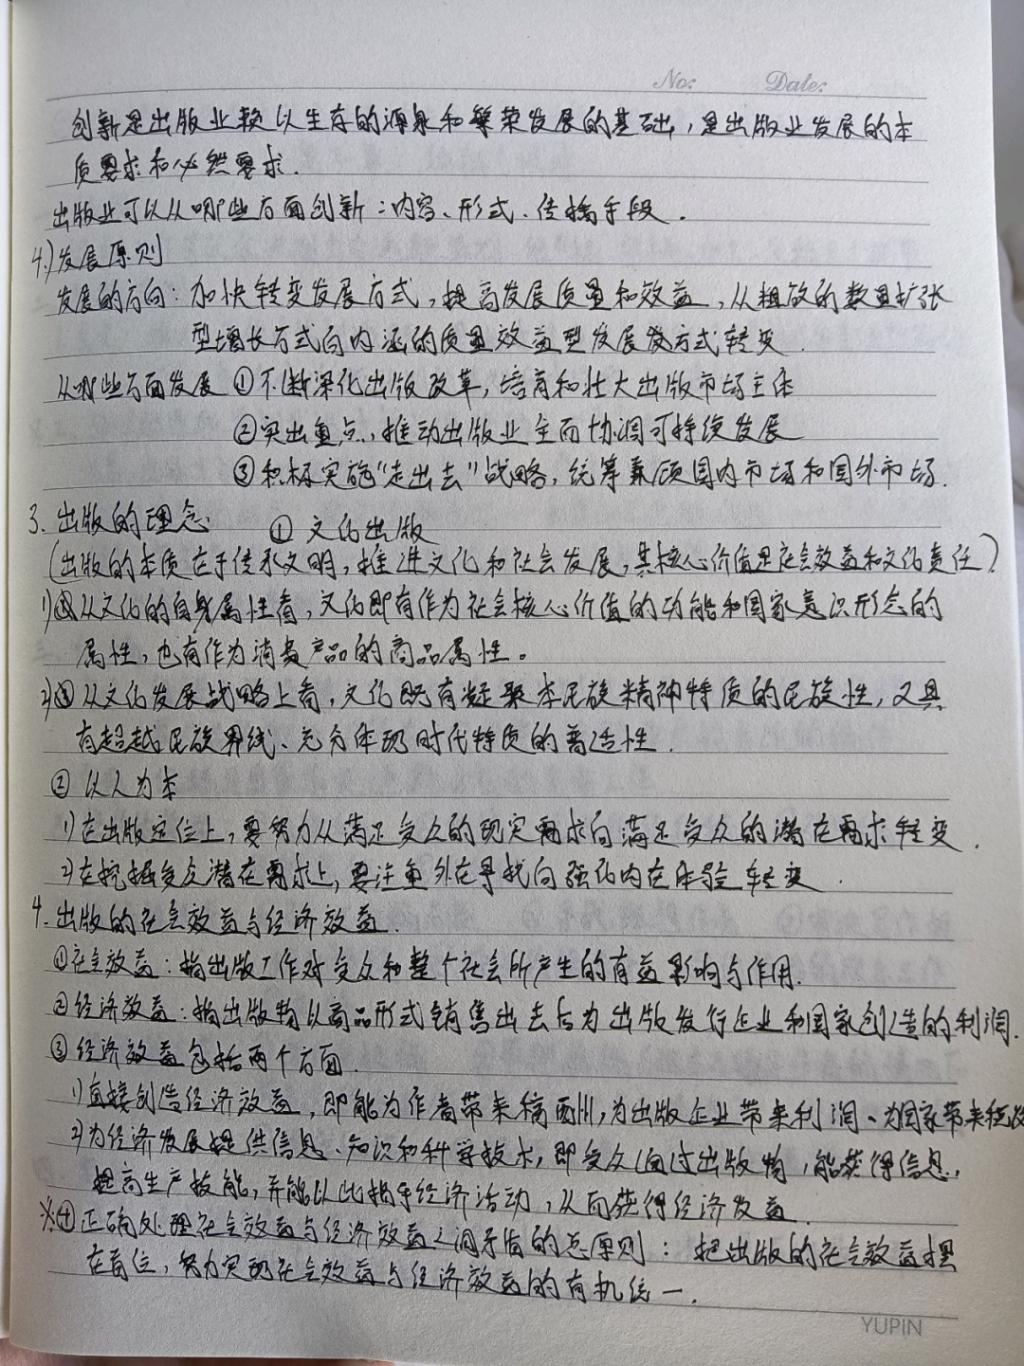 No: Date:
创新是出版业赖以生存的源泉和繁荣发展的基础，是出版业发展的本
质要求和必然要求.
出版业可以从哪些方面创新：内容、形式、传播手段.
4.)发展原则
发展的方向：加快转变发展方式，提高发展质量和效益，从粗放的数量扩张
型增长方式向内涵的质量效益型发展方式转变.
从哪些方面发展 ①不断深化出版改革，培育和壮大出版市场主体
②突出重点，推动出版业全面协调可持续发展
③积极实施“走出去”战略，统筹兼顾国内市场和国外市场.
3. 出版的理念. ① 文化出版
(出版的本质在于传承文明，推进文化和社会发展，其核心价值是社会效益和文化责任)
1)从文化的自身属性看，文化即有作为社会核心价值的功能和国家意识形态的
属性，也有作为消费产品的商品属性。
2)从文化发展战略上看，文化既有凝聚本民族精神特质的民族性，又具
有超越民族界线、充分体现时代特质的普适性.
② 以人为本
1)在出版定位上，要努力从满足受众的现实需求向满足受众的潜在需求转变.
2)在挖掘受众潜在需求上，要注重外在寻找向强化内在体验转变.
4. 出版的社会效益与经济效益.
①社会效益：指出版工作对受众和整个社会所产生的有益影响与作用.
②经济效益：指出版物以商品形式销售出去后为出版发行企业和国家创造的利润.
③经济效益包括两个方面.
1)直接创造经济效益，即能为作者带来稿酬，为出版企业带来利润、为国家带来税收
2)为经济发展提供信息、知识和科学技术，即受众通过出版物，能获得信息，
提高生产技能，并能以此指导经济活动，从而获得经济效益.
※④正确处理社会效益与经济效益之间矛盾的总原则：把出版的社会效益摆
在首位，努力实现社会效益与经济效益的有机统一.
YUPIN